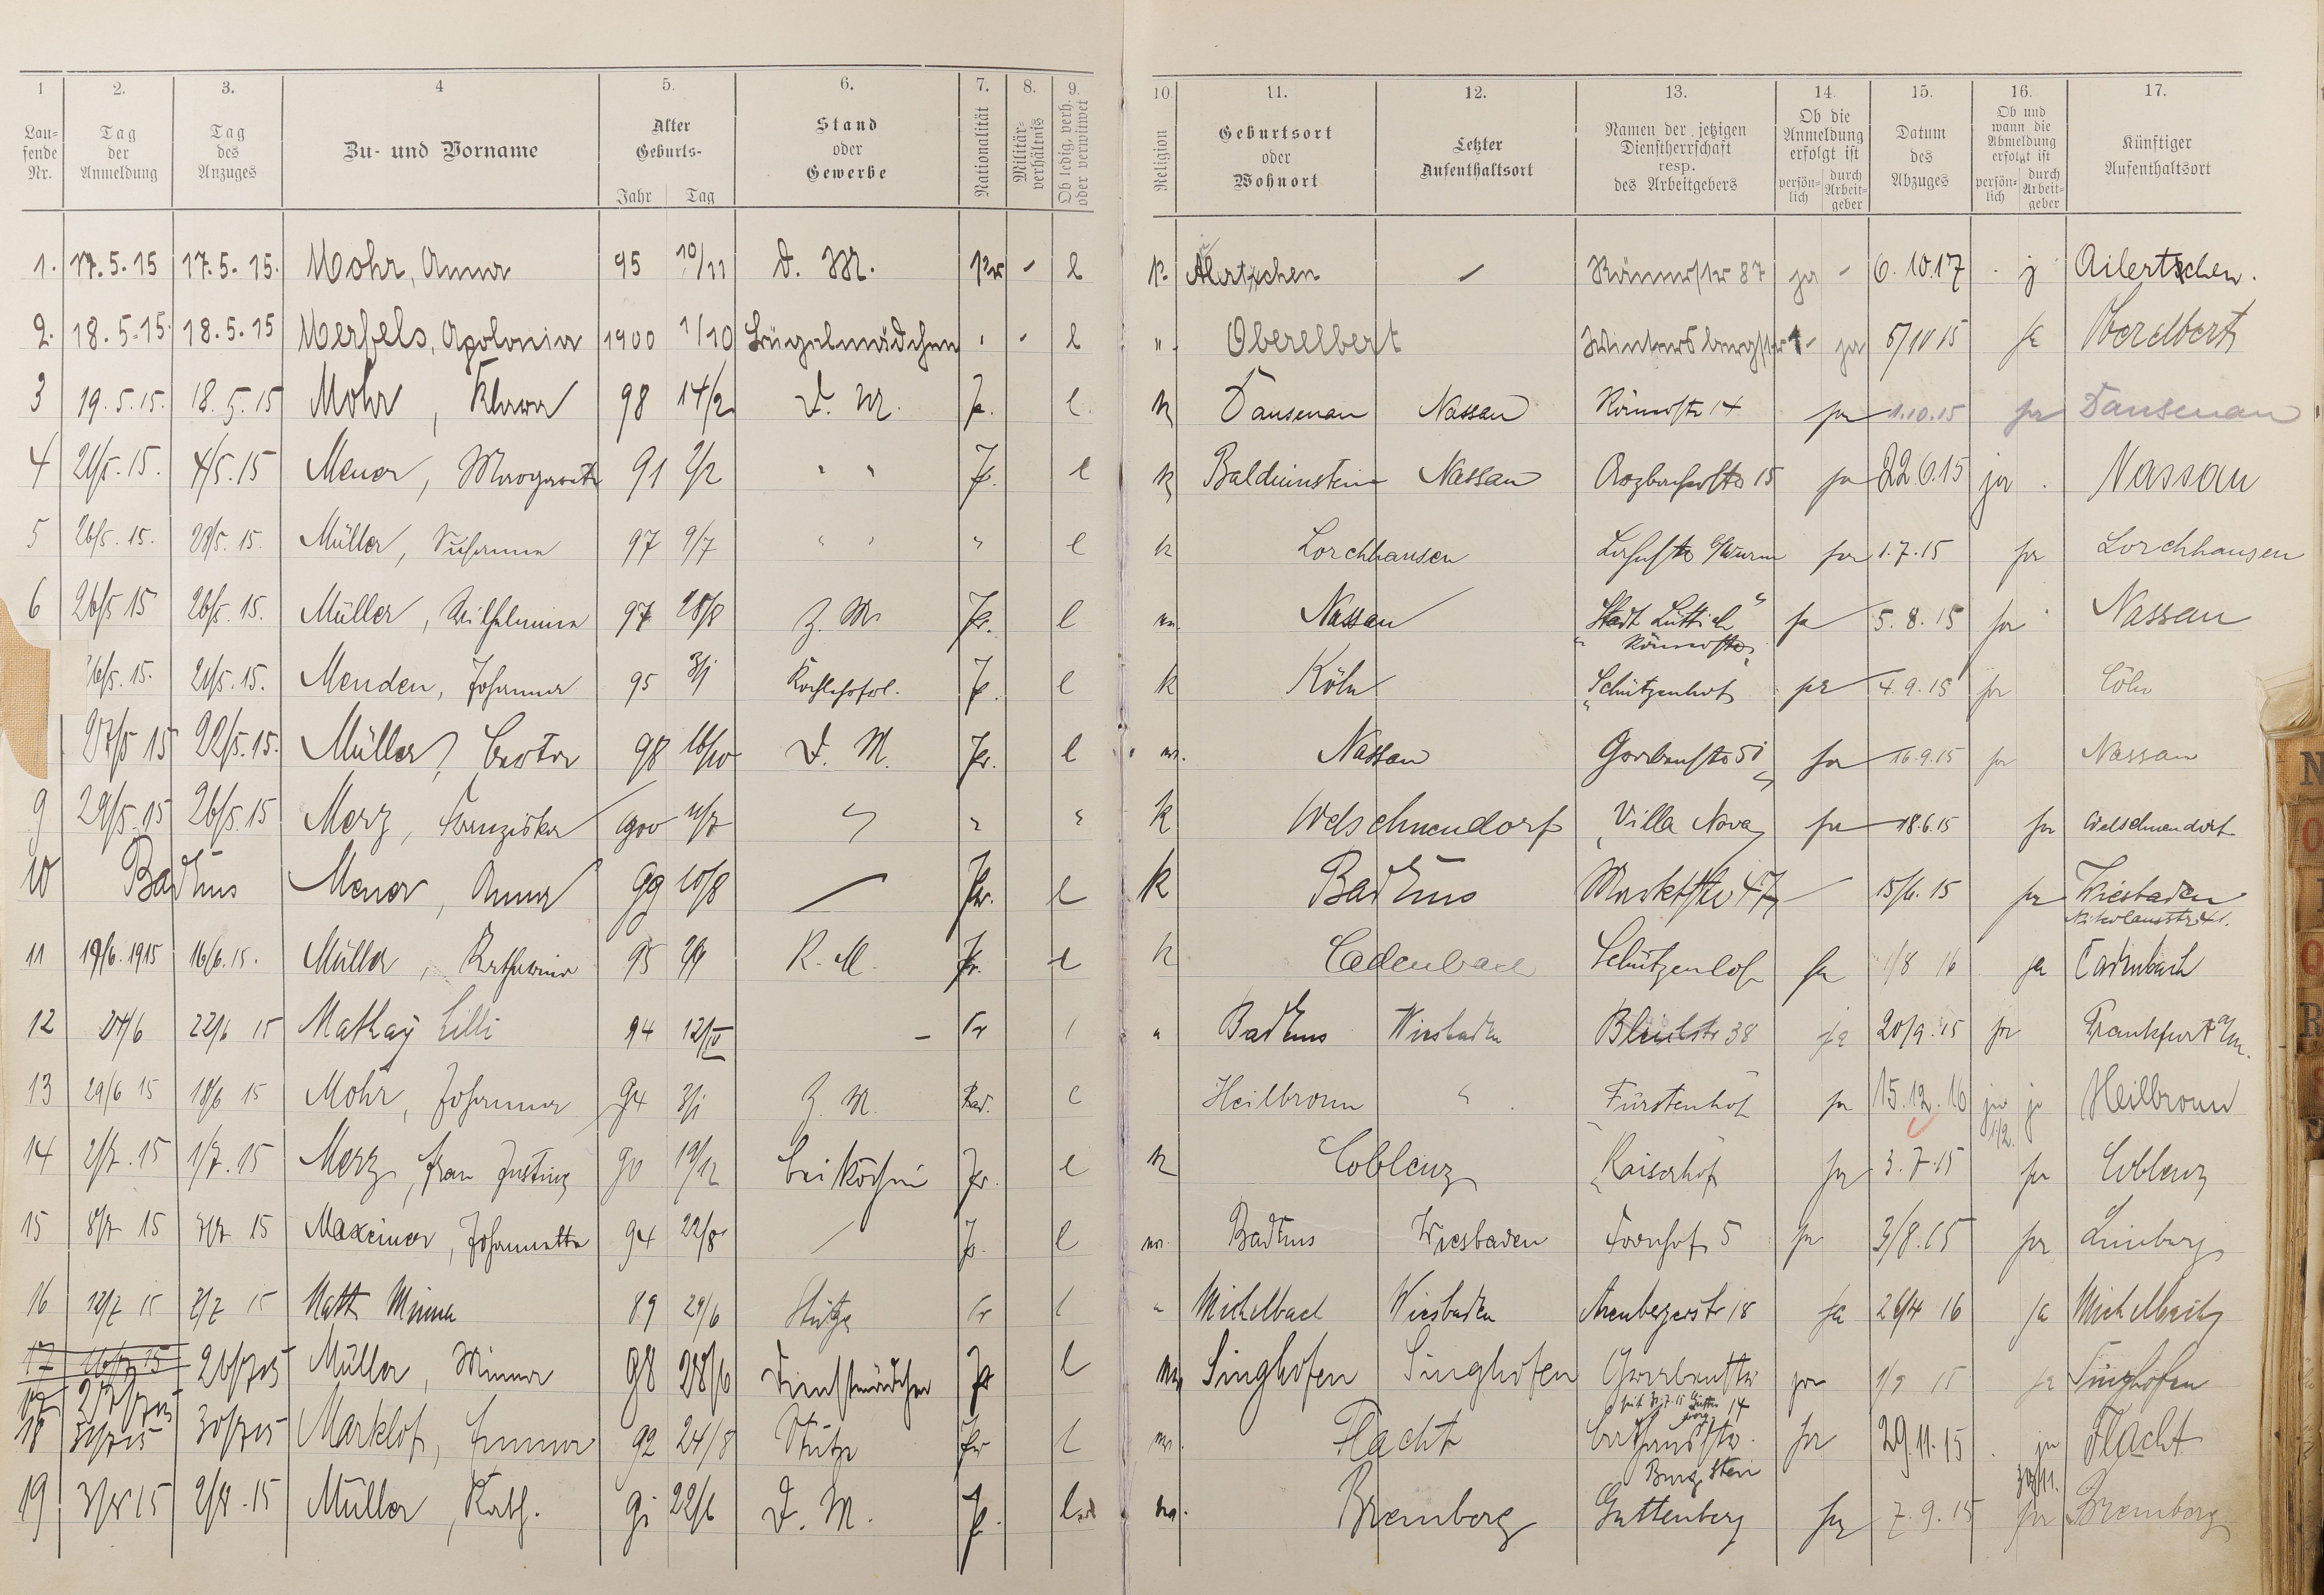 1 2. 3. 4 5. 6. 7. 8. 9. 10 11. 12. 13. 14. 15. 16. 17.
Lau-
fende
Nr.
Tag
der
Anmeldung
Tag
des
Anzuges
Zu- und Vorname
Alter
Geburts-
Jahr Tag
Stand
oder
Gewerbe
Nationalität
Militär-
verhältnis
Ob ledig, verh.
oder verwitwet
Religion
Geburtsort
oder
Wohnort
Letzter
Aufenthaltsort
Namen der jetzigen
Dienstherrschaft
resp.
des Arbeitgebers
Ob die
Anmeldung
erfolgt ist
persön-
lich
durch
Arbeit-
geber
Datum
des
Abzuges
Ob und
wann die
Abmeldung
erfolgt ist
persön-
lich
durch
Arbeit-
geber
Künftiger
Aufenthaltsort
1. 17.5.15 17.5.15. Mohr, Anna 95 10/11 D. M. Pr - l k. Ailertchen - Römerstr 87 ja - 6.10.17 j Ailertchen.
2. 18.5.15. 18.5.15 Merfels, Apolonia 1900 1/10 Bügelmädchen " - l " Oberelbert Wintersbergstr 1 - ja 5/10 15 ja Oberelbert
3 19.5.15. 18.5.15 Mohr, Klara 98 14/2 D. M. P. l. k Dausenau Nassau Römerstr 14 ja 1.10.15 ja Dausenau
4 21/5.15. 4/5.15 91 2/2 " " P. l k Balduinstein Nassau 15 ja 22.6.15 ja Nassau
5 26/5.15. 23/5.15. Müller, Susanna 97 9/7 " " " l k Lorchhausen ja 1.7.15 ja Lorchhausen
6 26/5 15 26/5.15. Müller, Wilhelmina 97 Z. M. Pr. l Nassau "Stadt Lüttich" Römerstr. ja 5.8.15 ja Nassau
26/5.15. 21/5.15. Menden, Johanna 95 3/1 P. l k Köln "Schützenhof" ja 4.9.15 ja Cöln
27/5 15 22/5.15. Müller, Berta 98 16/10 D. M. Pr. l Nassau Grabenstr 51 ja 16.9.15 ja Nassau
9 29/5.15 26/5.15 Merz, Franziska 900 11/7 " " " k Welschneudorf "Villa Nova" ja 18.6.15 ja Welschneudorf
10 Bad Ems Anna 99 10/8 - Pr. l k Bad Ems Marktstr 47 15/6.15 ja Wiesbaden
Nikolausstr 41.
11 19/6.1915 16/6.15. Müller, Katharina 95 K. M. Pr. l k Cadenbach Schützenhof ja 1/8 16 ja Cadenbach
12 24/6 22/6 15 Mathay Lilli 94 12/IV - Pr l " Bad Ems Wiesbaden Bleichstr 38 ja 20/9.15 ja Frankfurt a/M.
13 29/6 15 18/6 15 Mohr, Johanna 94 3/1 Z. M. Bad. l Heilbronn " Fürstenhof ja 15.12.16 ja Heilbronn
14 2/7.15 1/7.15 Merz, Frau Justine 90 19/12 Beiköchin Pr. l k Coblenz "Kaiserhof" ja 3.7.15 ja Coblenz
15 8/7 15 3/7 15 Maxeiner, Johannette 94 22/8 - P. l Bad Ems Wiesbaden 5 ja 3/8.15 ja Limburg
16 12/7 15 2/7 15 Matth Minna 89 29/6 Stütze Pr l " Michelbach Wiesbaden Arenbergerstr 18 ja 26/4 16 ja Michelbach
17 26/7 15 Müller, Minna 98 28/6 Dienstmädchen Pr l Singhofen Singhofen Grabenstr ja 1/9 15 ja Singhofen
18 31/7 15 30/7 15 Marklof, Emma 92 24/8 Stütze Pr l Flacht ja 29.11.15 ja Flacht
30/11.
19 3/8 15 2/8.15 Müller, Kath. 91 22/6 D. M. P. Bremberg Burg Stein Guttenberg ja 7.9.15 ja Bremberg